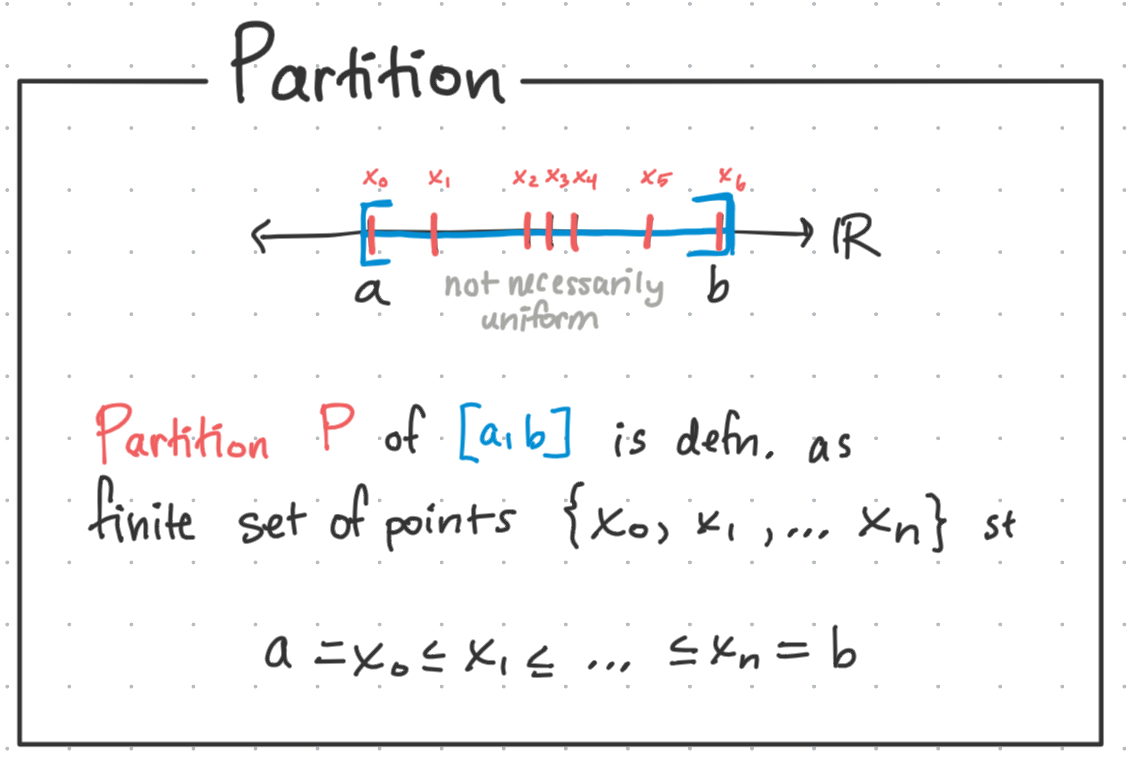 Partition
x₀ x₁ x₂ x₃ x₄ x₅ x₆
ℝ
a b
not necessarily
uniform
Partition P of [a,b] is defn. as
finite set of points {x₀, x₁ ,... xₙ} st
a = x₀ ≤ x₁ ≤ ... ≤ xₙ = b